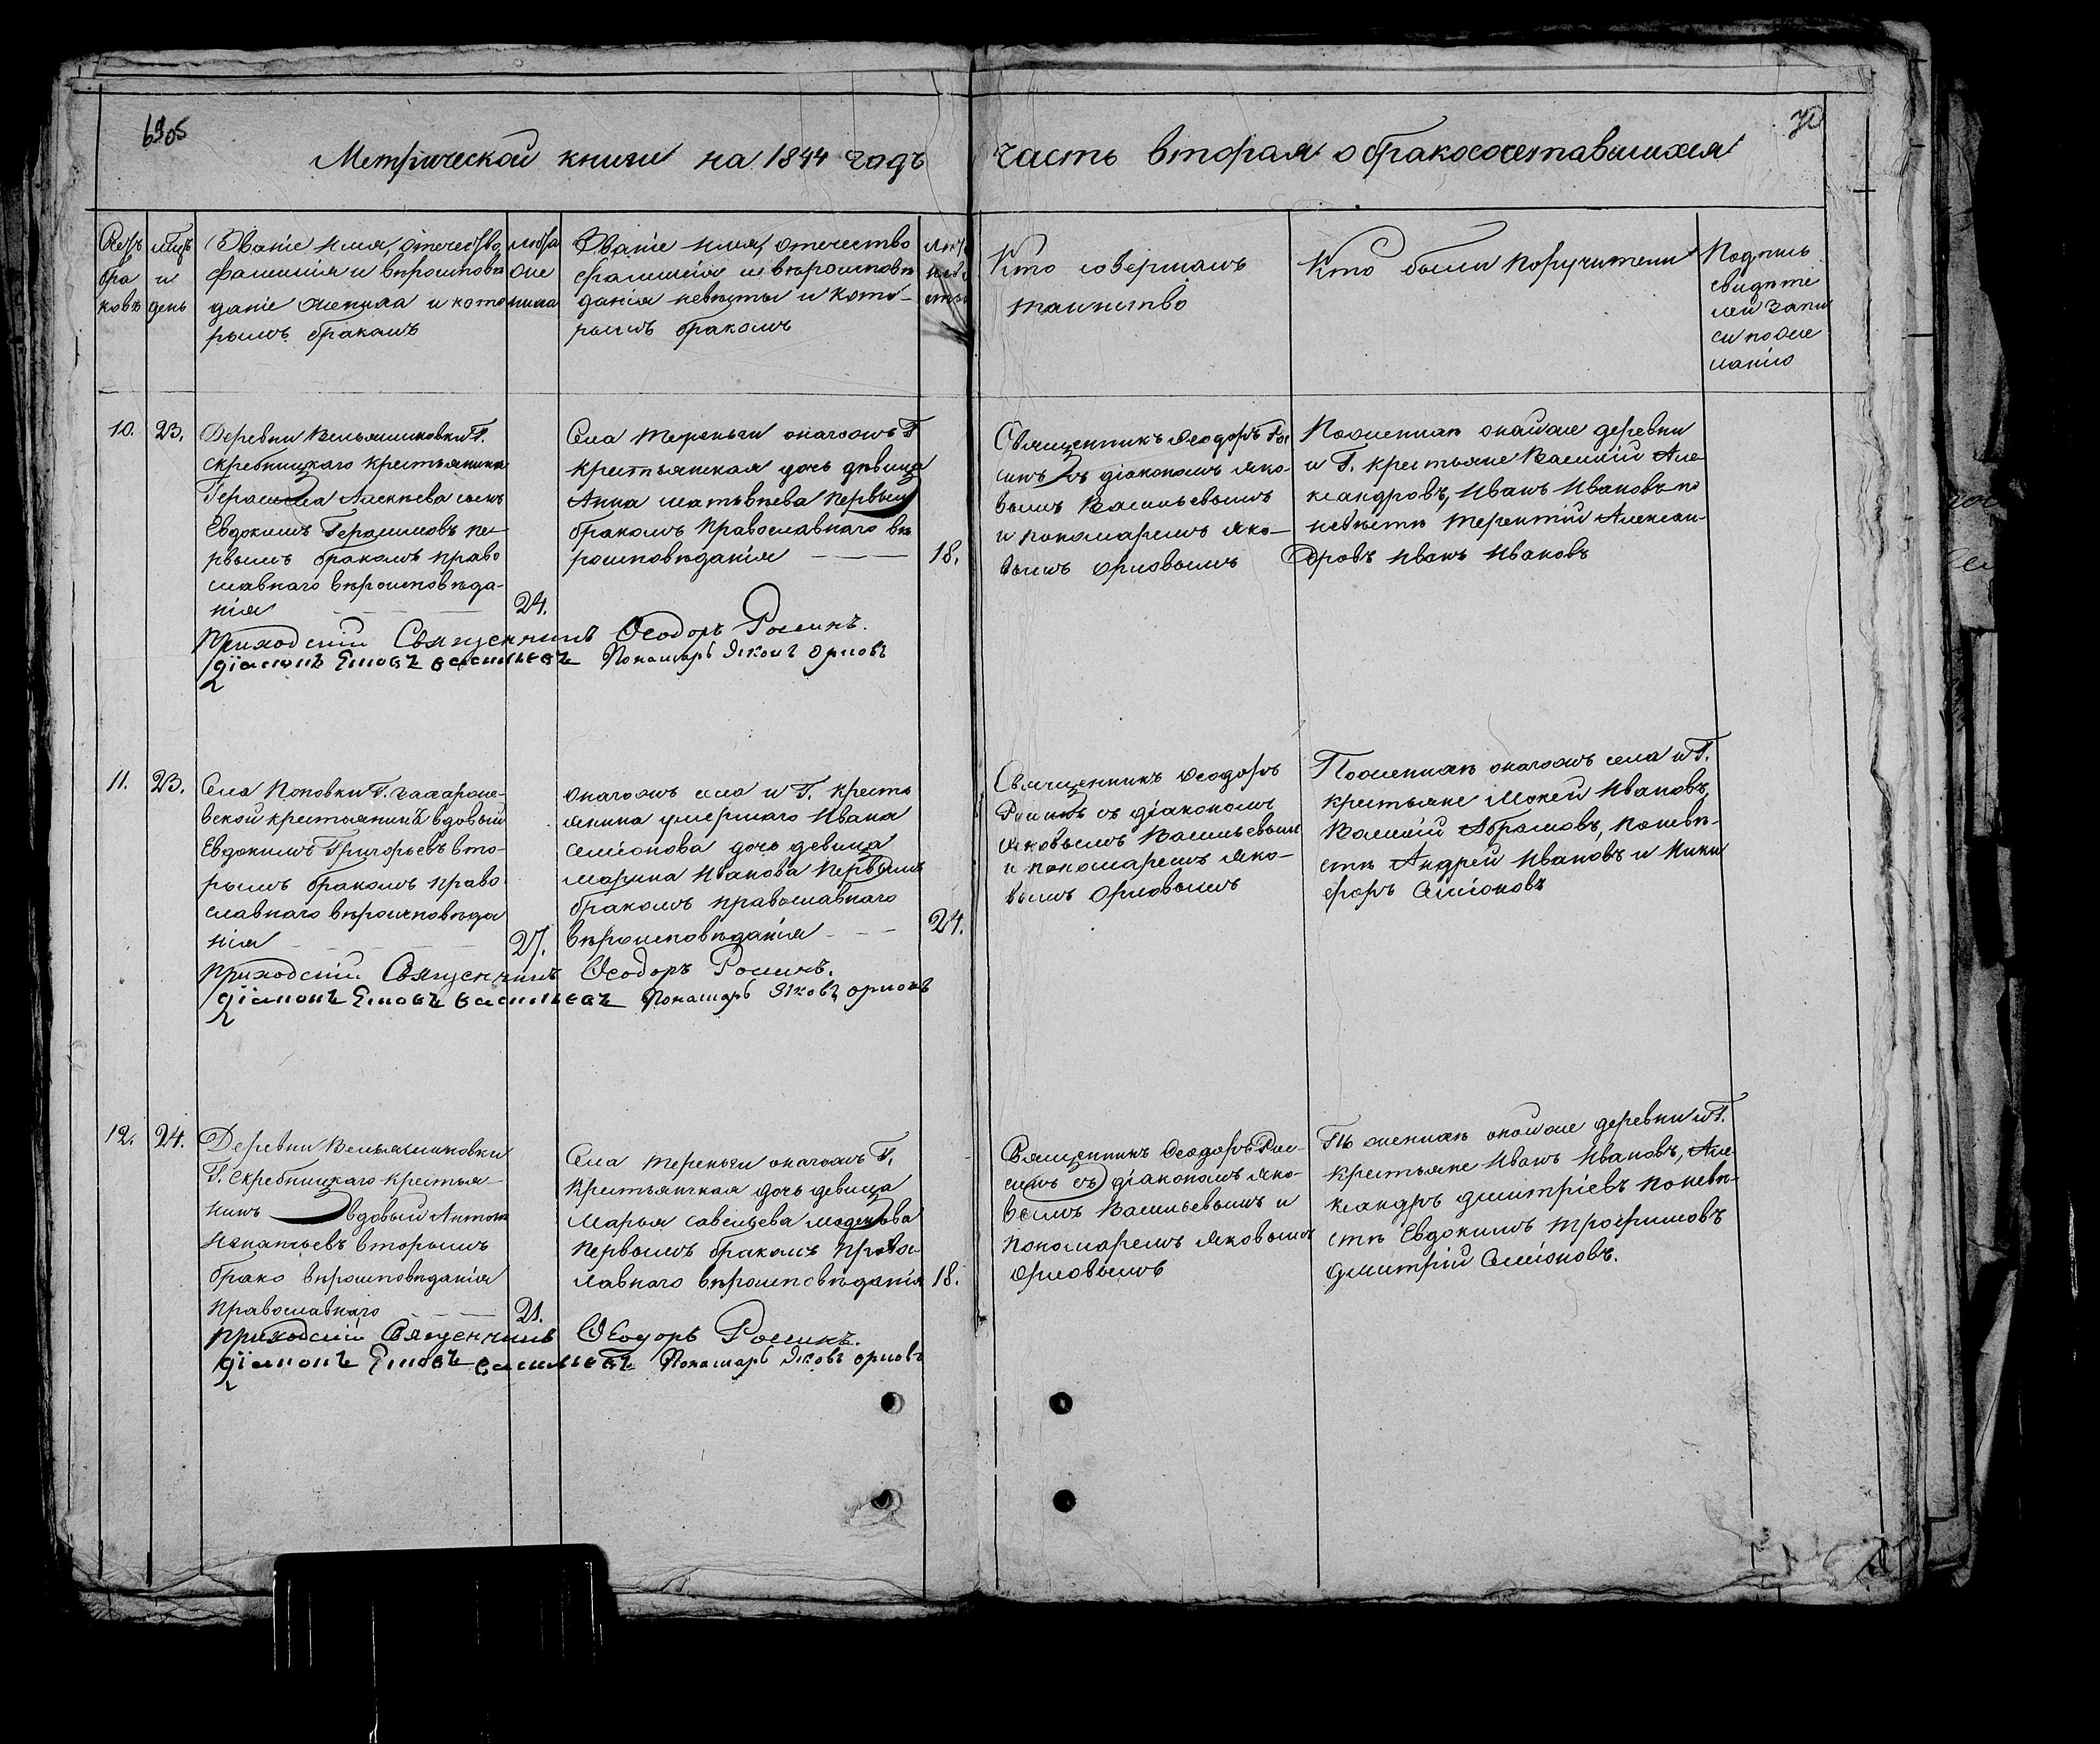 Метрической книги на 1844 годъ часть вторая о бракосочетавшихся
Счетъ
бра
ковъ
мцъ
и
день
Званіе имя, отечество,
фамилія и вѣроисповѣ
даніе жениха и кото
рымъ бракомъ
лѣта
же
ниха
Званіе имя, отечество
фамилія и вѣроисповѣ
данія невѣсты и кото-
рымъ бракомъ
лѣта
невѣ
сты
Кто совершалъ
таинство
Кто были поручители
Подпись
свидѣте
лей запи
си по же
ланію
10.
23.
Деревни Вельяминовки Г.
Скребницкаго крестьянина
Герасима Алексѣева сынъ
Евдокимъ Герасимовъ пе-
рвымъ бракомъ право
славнаго вѣроисповѣда-
нія
24.
Села Тереньги онагожъ Г.
крестьянская дочь дѣвица
Анна Матвѣева первымъ
бракомъ православнаго вѣ
роисповѣданія
18.
Священникъ Ѳеодоръ Ро
синъ съ діакономъ Яко-
вымъ Васильевымъ
и пономаремъ Яко-
вымъ Орловымъ
По женихѣ онойже деревни
и Г. крестьяне Василій Але-
ксандровъ, Иванъ Ивановъ по
невѣстѣ Терентій Алексан-
дровъ Иванъ Ивановъ
Приходскій Священникъ Ѳеодоръ Росинъ.
Діаконъ Яковъ Васильевъ Пономарь Яковъ Орловъ
11.
23.
Села Поповки Г.
вской крестьянинъ вдовый
Евдокимъ Григорьевъ вто-
рымъ бракомъ право
славнаго вѣроисповѣда
нія
27.
Онагожъ села и Г. кресть
янина умершаго Ивана
Семіонова дочь девица
Марина Иванова первымъ
бракомъ православнаго
вѣроисповѣданія
24.
Священникъ Ѳеодоръ
Росинъ съ діакономъ
Яковымъ Васильевымъ
и пономаремъ Яко-
вымъ Орловымъ
По женихѣ онагожъ села и Г.
крестьяне Мокей Ивановъ,
Василій Абрамовъ, по невѣ-
стѣ Андрей Ивановъ и Ники
форъ Семіоновъ
Приходскій Священникъ Ѳеодоръ Росинъ.
Діаконъ Яковъ Васильевъ Пономарь Яковъ Орловъ
12.
24.
Деревни Вельяминовки
Г. Скребницкаго крестья-
нинъ вдовый Антонъ
Игнатьевъ вторымъ
брако вѣроисповѣданія
православнаго
21.
Села Тереньги онагожъ Г.
крестьянская дочь девица
Марья Савельева
первымъ бракомъ правос
лавнаго вѣроисповѣданія
18.
Священникъ Ѳеодоръ Рос-
синъ съ діакономъ Яко-
вымъ Васильевымъ и
пономаремъ Яковымъ
Орловымъ
По женихѣ онойже деревни и Г.
крестьяне Иванъ Ивановъ, Але-
ксандръ Дмитріевъ по невѣ-
стѣ Евдокимъ Трофимовъ
Дмитрій Семіоновъ.
Приходскій Священникъ Ѳеодоръ Росинъ.
Діаконъ Яковъ Васильевъ Пономарь Яковъ Орловъ